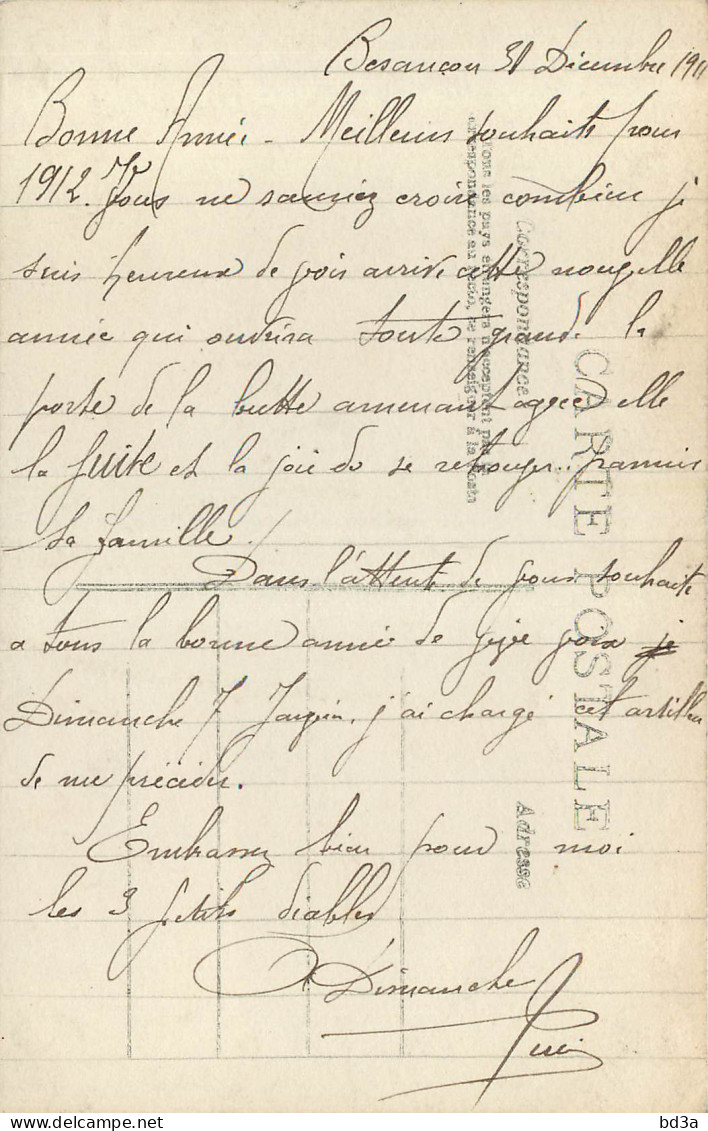 Besançon 31 Décembre 1911
Bonne Année - Meilleurs souhaits pour
1912. Vous ne sauriez croire combien je
suis heureux de voir arriver cette nouvelle
année qui ouvrira toute grande la
porte de la butte amenant avec elle
la fuite et la joie de se retrouver parmis
sa famille.
Dans l'attente de vous souhaite
a tous la bonne année de vive voix je
Dimanche 7 Janvier, j'ai chargé cet artilleur
de me précéder.
Embrassez bien pour moi
les 3 petits diables
A Dimanche
CARTE POSTALE
Correspondance
Tous les pays étrangers n'acceptent pas la
correspondance au recto, se renseigner à la Poste
Adresse
bd3a